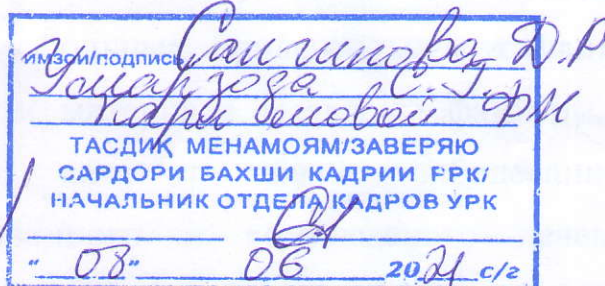 имзои/подпись Сангинова Д.Р
Умарзода С.Г.
Каримовой Ф.Н
ТАСДИҚ МЕНАМОЯМ/ЗАВЕРЯЮ
САРДОРИ БАХШИ КАДРИИ РРК/
НАЧАЛЬНИК ОТДЕЛА КАДРОВ УРК
" 08 " 06 2021 с/г